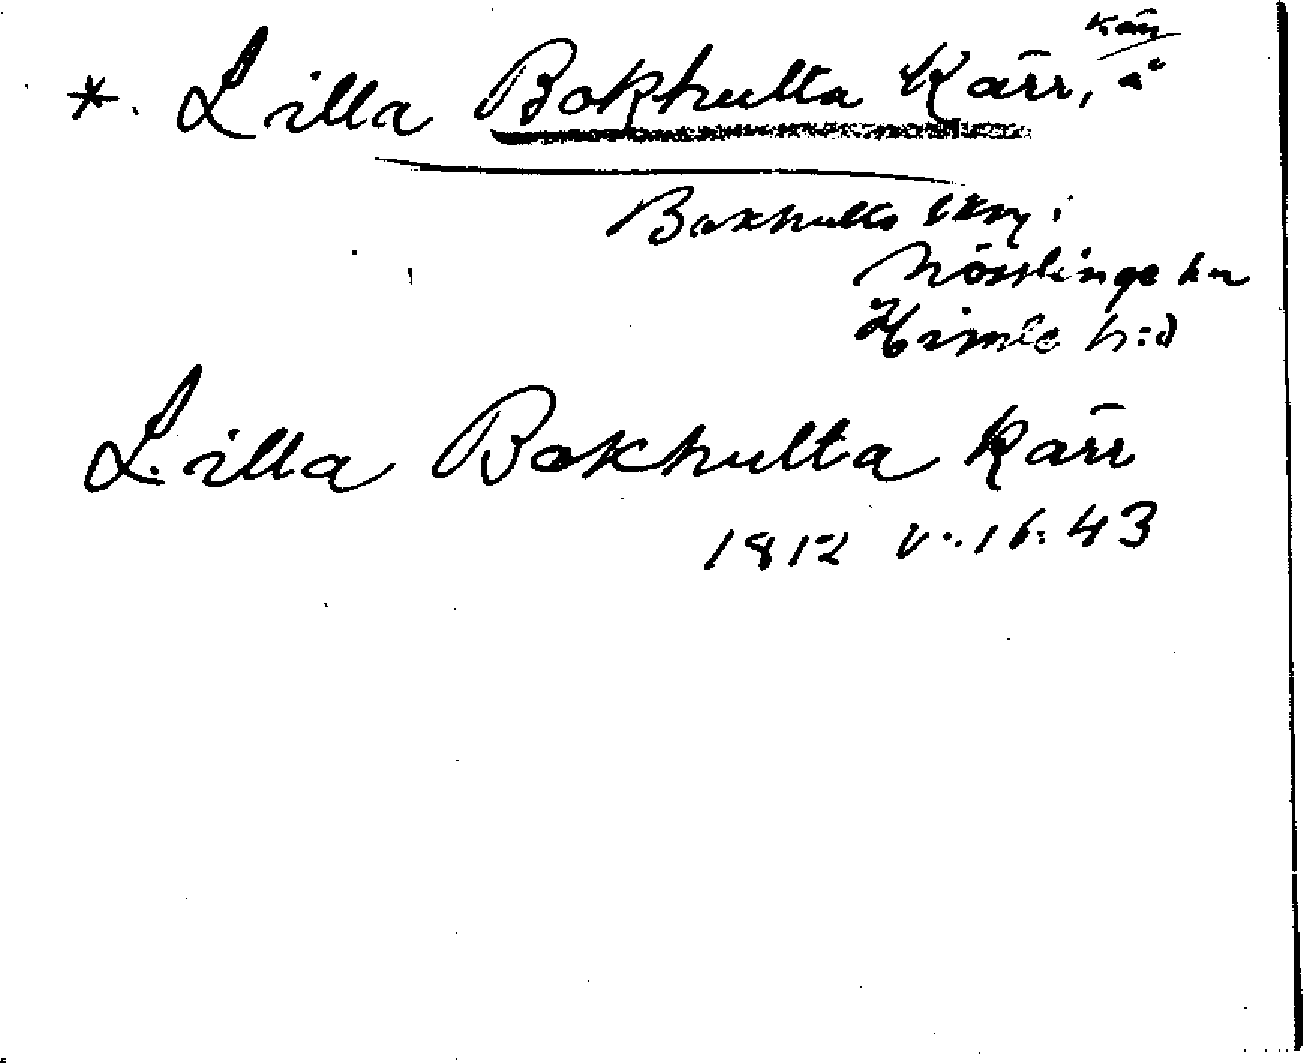 *. Lilla Bokhulta Kärr, kärr å
Bokhulta skog i
Nösslinge sn
Himle h:d
Lilla Bokhulta Kärr
1812 v. 16. 43